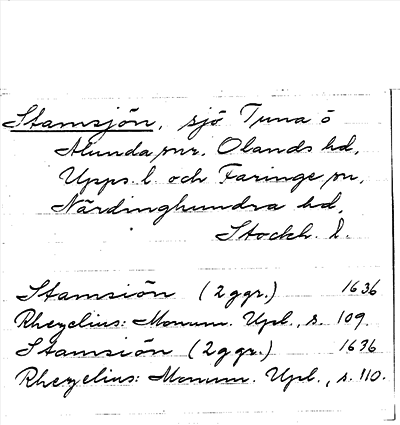 Stamsjön, sjö Tuna o
Alunda snr. Olands hd,
Upps. l. och Faringe sn,
Närdinghundra hd,
Stockh. l.
Stamsiön (2 ggr.) 1636
Rhezelius: Monum. Upl., s. 109.
Stamsiön (2 ggr.) 1636
Rhezelius: Monum. Upl., s. 110.